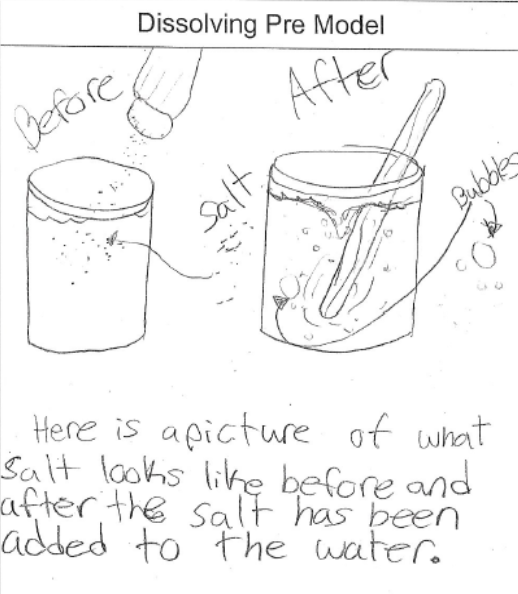 Dissolving Pre Model
Before
After
Salt
Bubbles
Here is a picture of what
Salt looks like before and
after the salt has been
added to the water.